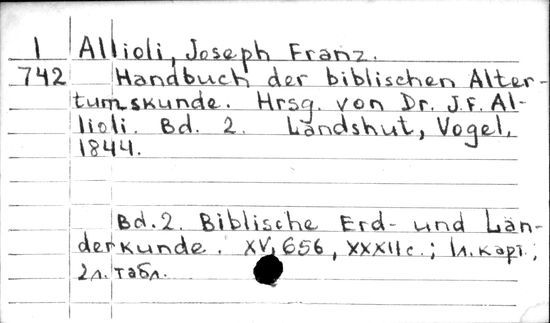 I Allioli, Joseph Franz.
742 Handbuch der biblischen Alter-
tumskunde. Hrsg. von Dr. J.F. Al-
lioli. Bd. 2. Landshut, Vogel,
1844.
Bd. 2. Biblische Erd- und Län-
derkunde. XV, 656, XXXII с.; 1 л. карт.;
2 л. табл.